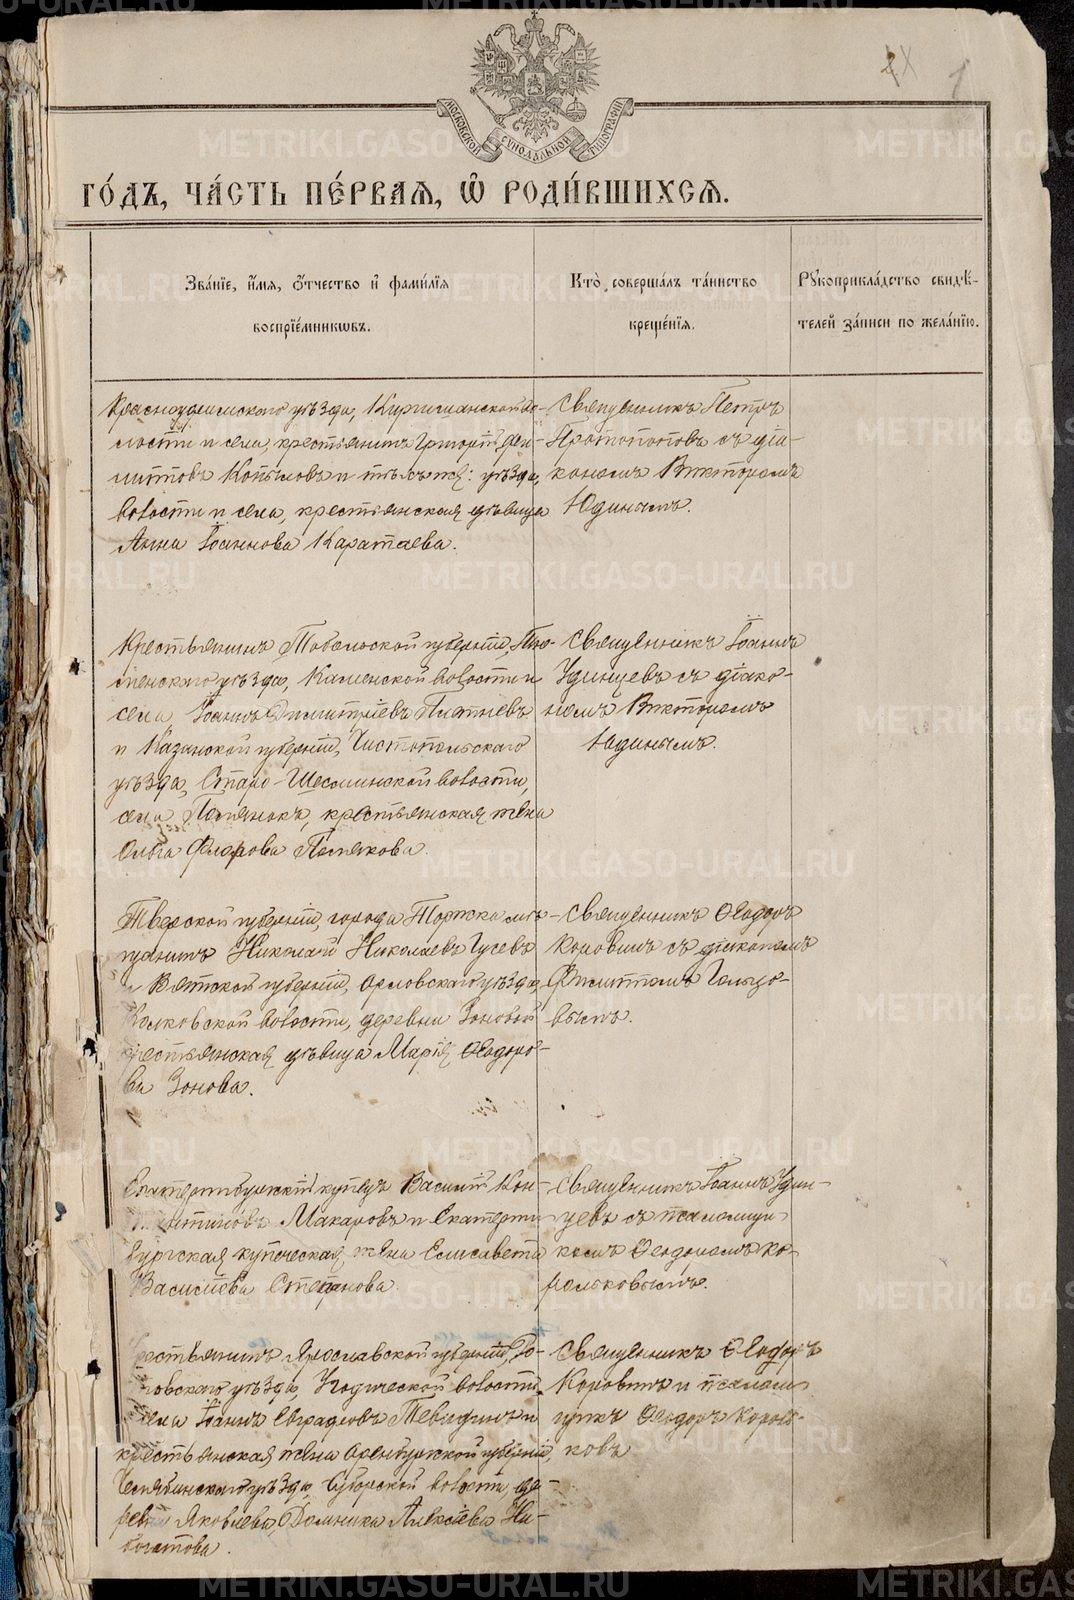 МОСКОВСКОЙ СѴНОДАЛЬНОЙ ТИПОГРАФІИ
1
ГО́ДЪ, ЧА́СТЬ ПЕ́РВАЯ, Ѽ РОДИ́ВШИХСЯ.
Зва́нїе, и́мя, ѻ҆́тчество и҆ фами́лїя
воспрїе́мникѡвъ.
Кто̀ соверша́лъ та́инство
креще́нїя.
Рꙋкоприкла́дство свидѣ́-
телей за́писи по жела́нїю.
Красноуфимскаго уѣзда, Киргишанской во-
лости и села, крестьянинъ Григорій Ди-
митріевъ Копыловъ и тѣхъ же: уѣзда,
волости и села, крестьянская дѣвица
Анна Іоаннова Каратаева.
Священникъ Петръ
Протопоповъ съ діа-
кономъ Викторомъ
Юдинымъ.
Крестьянинъ Тобольской губерніи, Тю-
менскаго уѣзда, Каменской волости и
села, Іоаннъ Димитріевъ Плотневъ
и Казанской губерніи, Чистопольскаго
уѣзда, Старо-Шешминской волости,
села, крестьянская жена
Ольга Флорова Полякова.
Священникъ Іоаннъ
Удинцевъ съ діако-
номъ Викторомъ
Юдинымъ.
Тверской губерніи, города Торжка мѣ-
щанинъ Николай Николаевъ Гусевъ
и Вятской губерніи, Орловскаго уѣзда,
волости, деревни Зоновой
крестьянская дѣвица Марія Ѳеодоро-
ва Зонова.
Священникъ Ѳеодоръ
Коровинъ съ діакономъ
Филиппомъ Гольцо-
вымъ.
Екатеринбургскій купецъ Василій Кон-
стантиновъ Макаровъ и Екатерин-
бургская купеческая жена Елисавета
Василіева Степанова.
Священникъ Іоаннъ Удин-
цевъ съ псаломщи-
комъ Ѳеодоромъ Ко-
рольковымъ.
Крестьянинъ Ярославской губерніи, Ро-
стовскаго уѣзда, Угодической волости
села Іоаннъ Евграфовъ и
крестьянская жена Оренбургской губерніи,
Челябинскаго уѣзда, волости, де-
ревни Яковлева, Домника Алексіева Ни-
богатова.
Священникъ Ѳеодоръ
Коровинъ и псалом-
щикъ Ѳеодоръ Король-
ковъ
METRIKI.GASO-URAL.RU